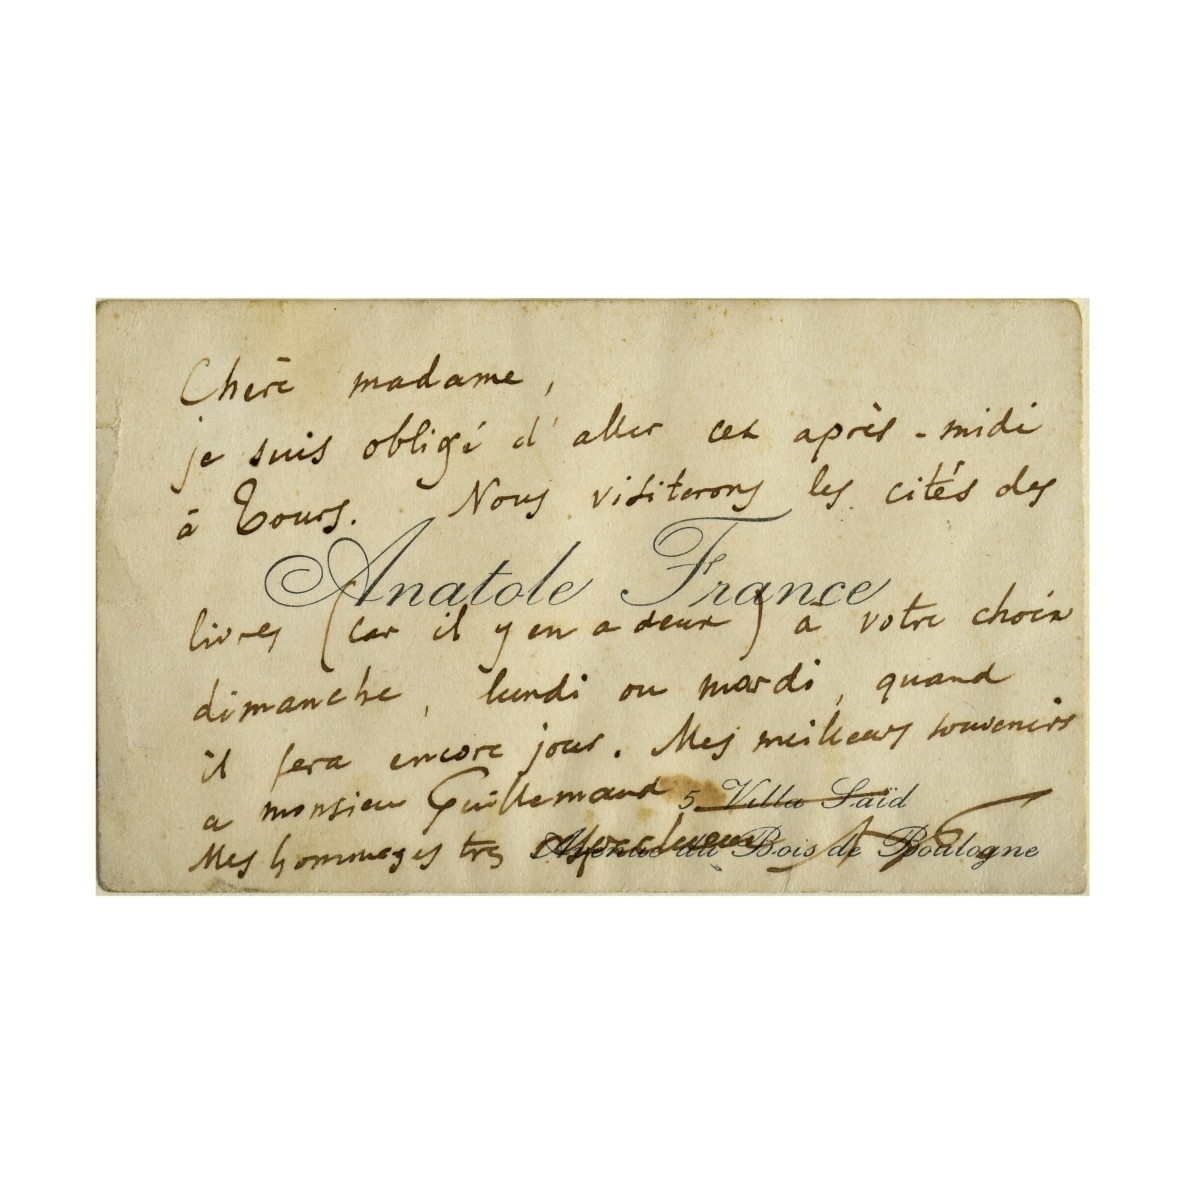 Chère madame,
je suis obligé d'aller cet après-midi
à Tours. Nous visiterons les cités des
Anatole France
livres (car il y en a deux) à votre choix
dimanche, lundi ou mardi, quand
il fera encore jour. Mes meilleurs souvenirs
a monsieur Guillemaud
5, Villa Saïd
Mes hommages très
Avenue du Bois de Boulogne